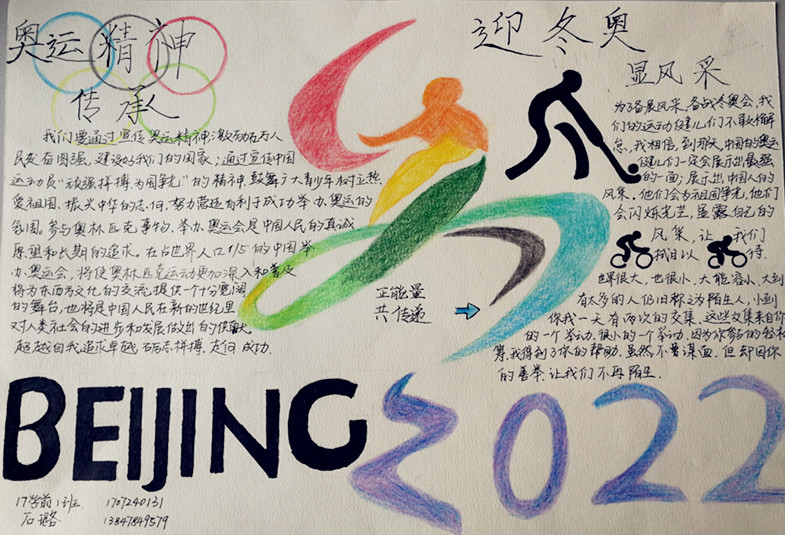 奥运精神
传承
我们要通过宣传奥运精神,激励百万人
民发奋图强,建设好我们的国家;通过宣传中国
运动员"顽强拼搏为国争光"的精神,鼓舞广大青少年树立热
爱祖国、振兴中华的志向,努力营造有利于成功举办奥运的
氛围。参与奥林匹克事物,举办奥运会是中国人民的真诚
愿望和长期的追求。在占世界人口1/5的中国举
办奥运会,将使奥林匹克运动更加深入和普及
将为东西方文化的交流提供一个十分宽阔
的舞台,也将是中国人民在新的世纪里
对人类社会的进步和发展做出的贡献
超越自我追求卓越,砥砺拼搏,走向成功.
迎冬奥
显风采
为了备展风采,备战冬奥会,我
们的运动健儿们不敢有懈
怠,我相信,到那天,中国的奥运
健儿们一定会展示出最强
的一面;展示出中国人的
风采,他们会为祖国争光,他们
会闪烁光芒,显露自己的
风采,让我们
拭目以待.
世界很大,也很小,大能容小,大到
有太多的人仍旧称之为陌生人,小到
你我一天有两次的交集,这些交集来自你
的一个举动,很小的一个举动,因为你
我得到了你的帮助,虽然不曾谋面,但却因你
的善举,让我们不再陌生.
正能量
共传递
BEIJING 2022
17学前1班 1707240131
石璐 13847849579